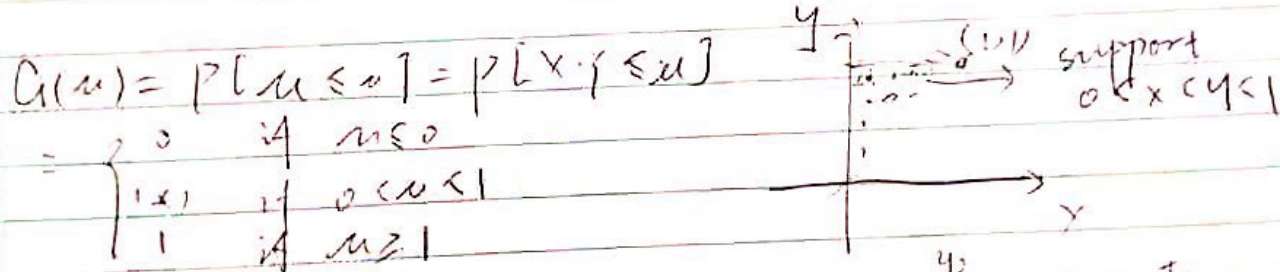 G(u) = P[u ≤ u] = P[X·Y ≤ u]
= { 0 if u ≤ 0
(*) if 0 < u < 1
1 if u ≥ 1
y
(1,1)
support
0 < x < y < 1
x